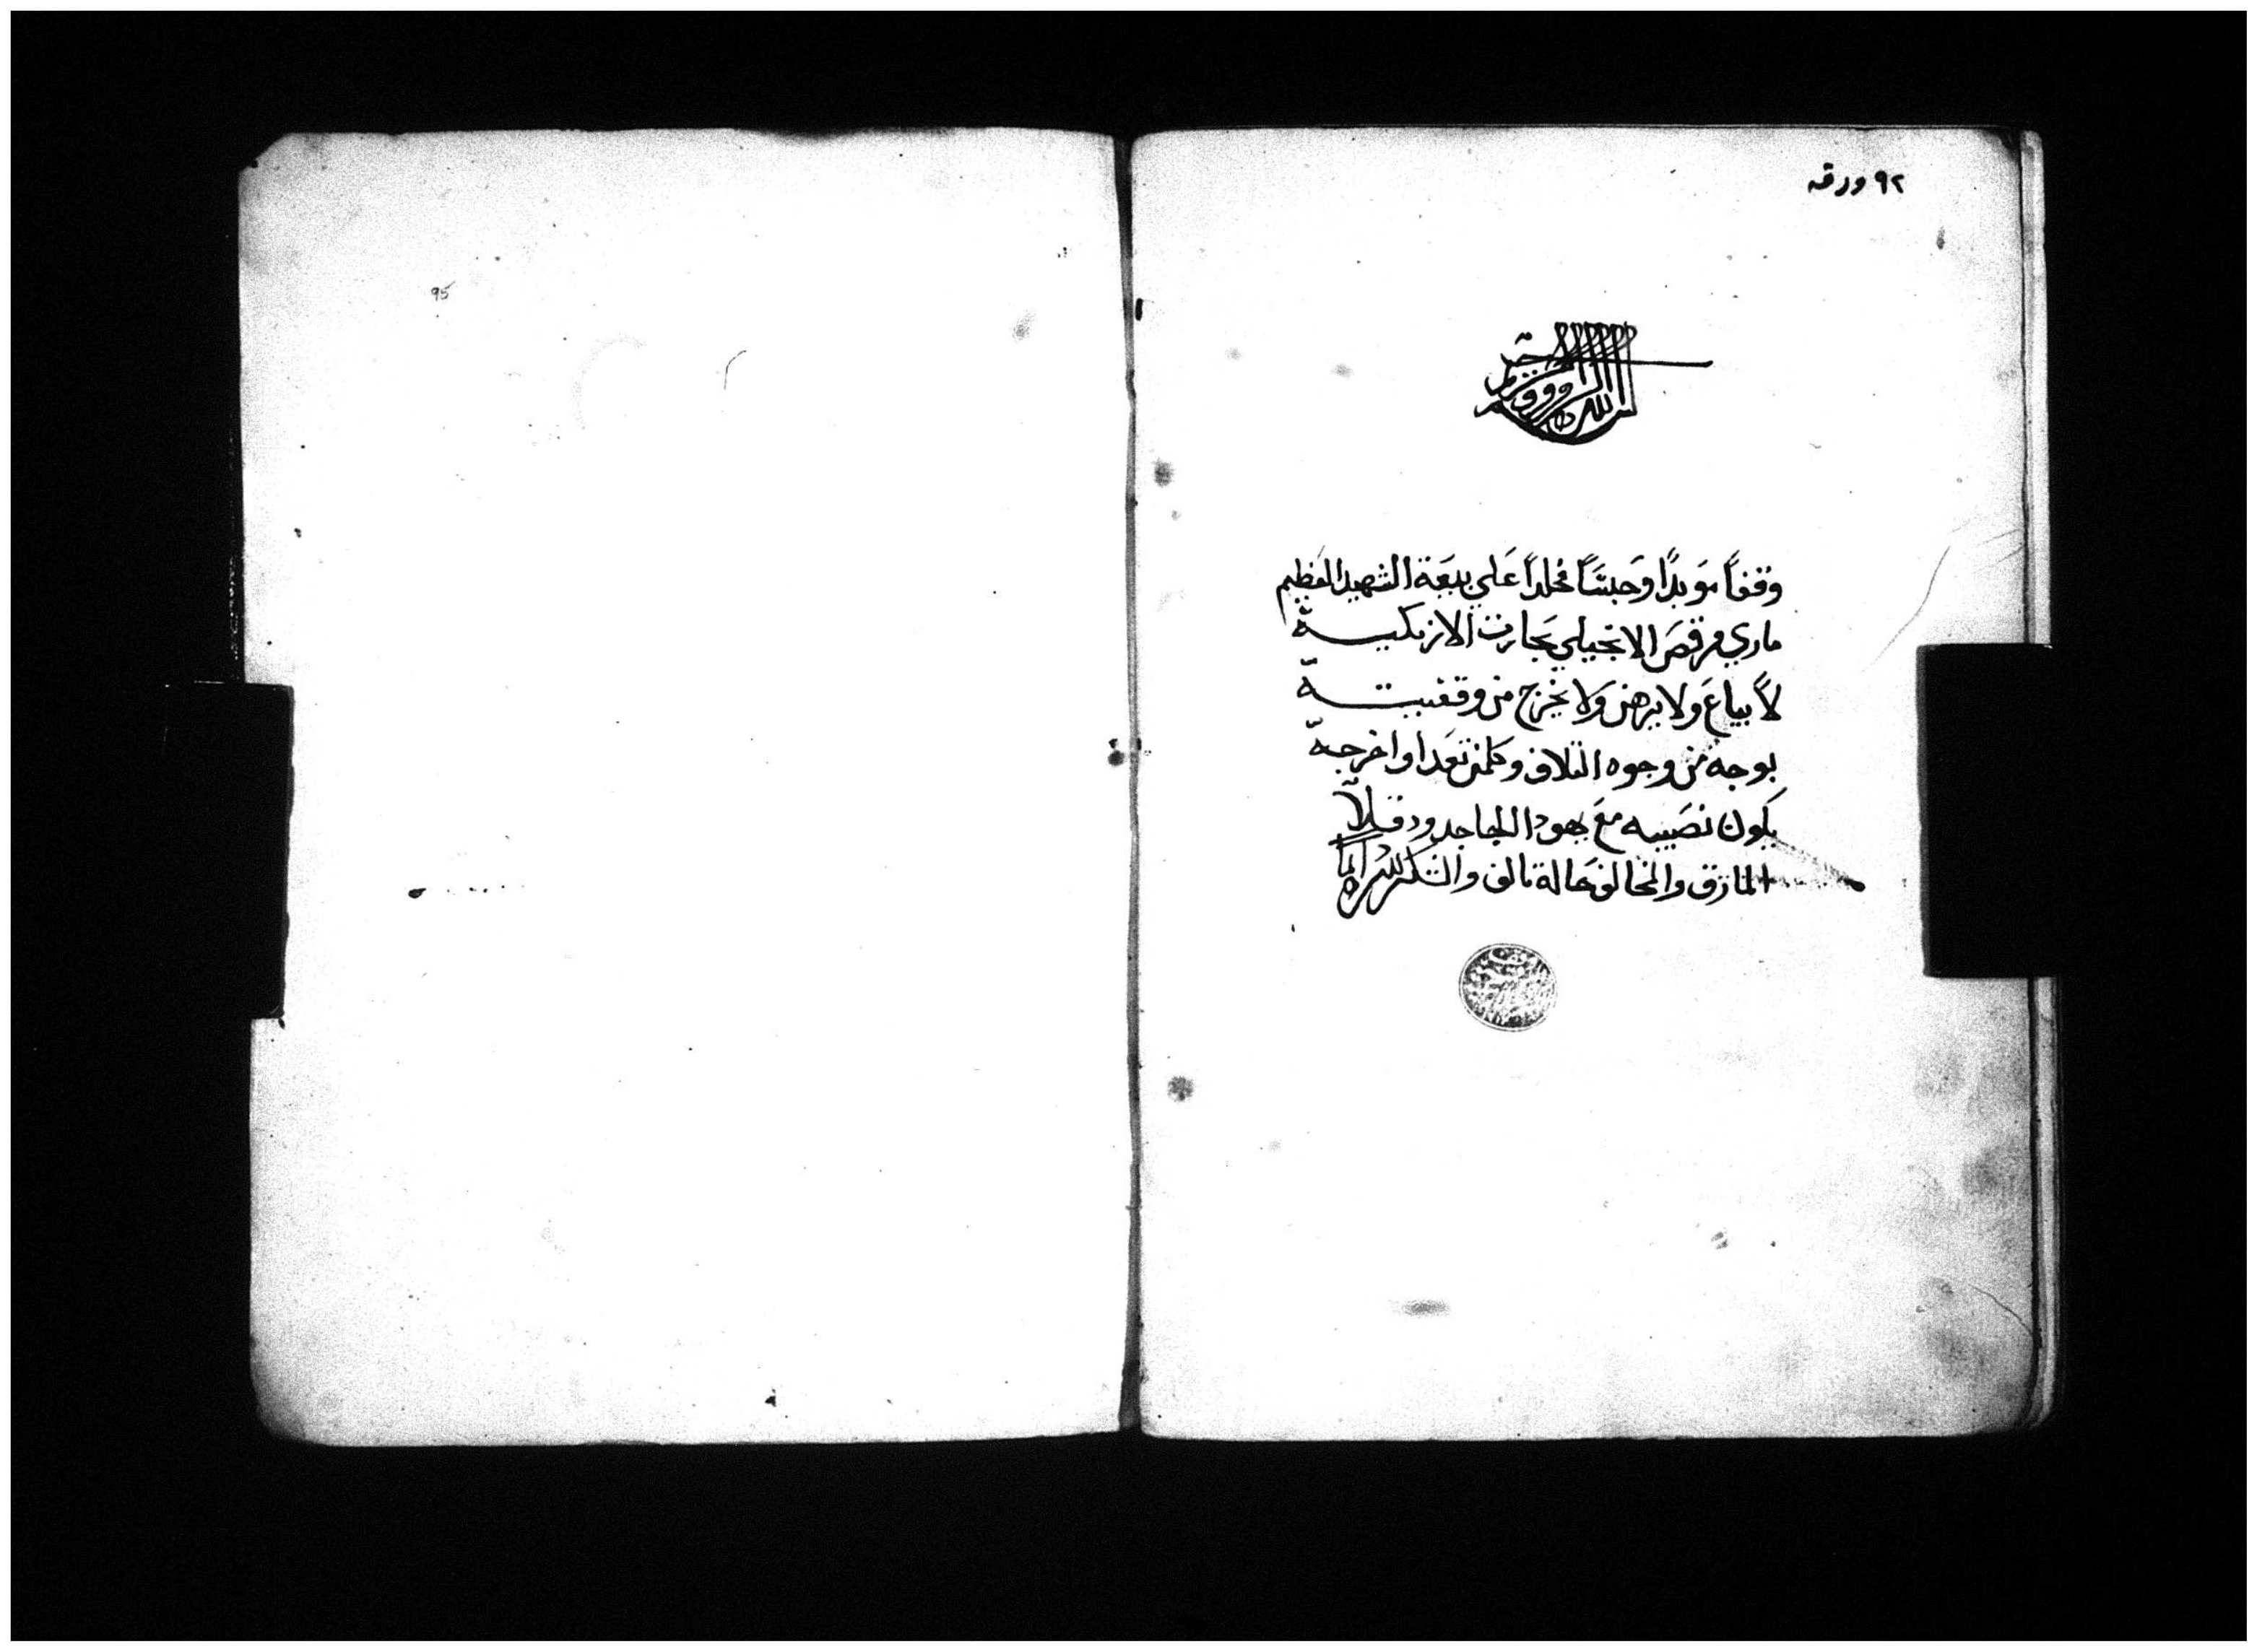 ٩٢ ورقه
وقفاً موبداً وحبسَاً مخلداً عَلي بيعَة الشهيد العظيم
ماري مرقصَ الانجيلي بحارت الازبكيـــة
لاَ يباعَ ولا يرهن وَلا يخرج من وقفيتــه
بوجه من وجوه التلاف وكلمن تعَدا واخرجه
يكون نصَيبه معَ يهودا الجاحد ودقلا
المارق والمخالف حالة تالف والشكر لله دايما
95